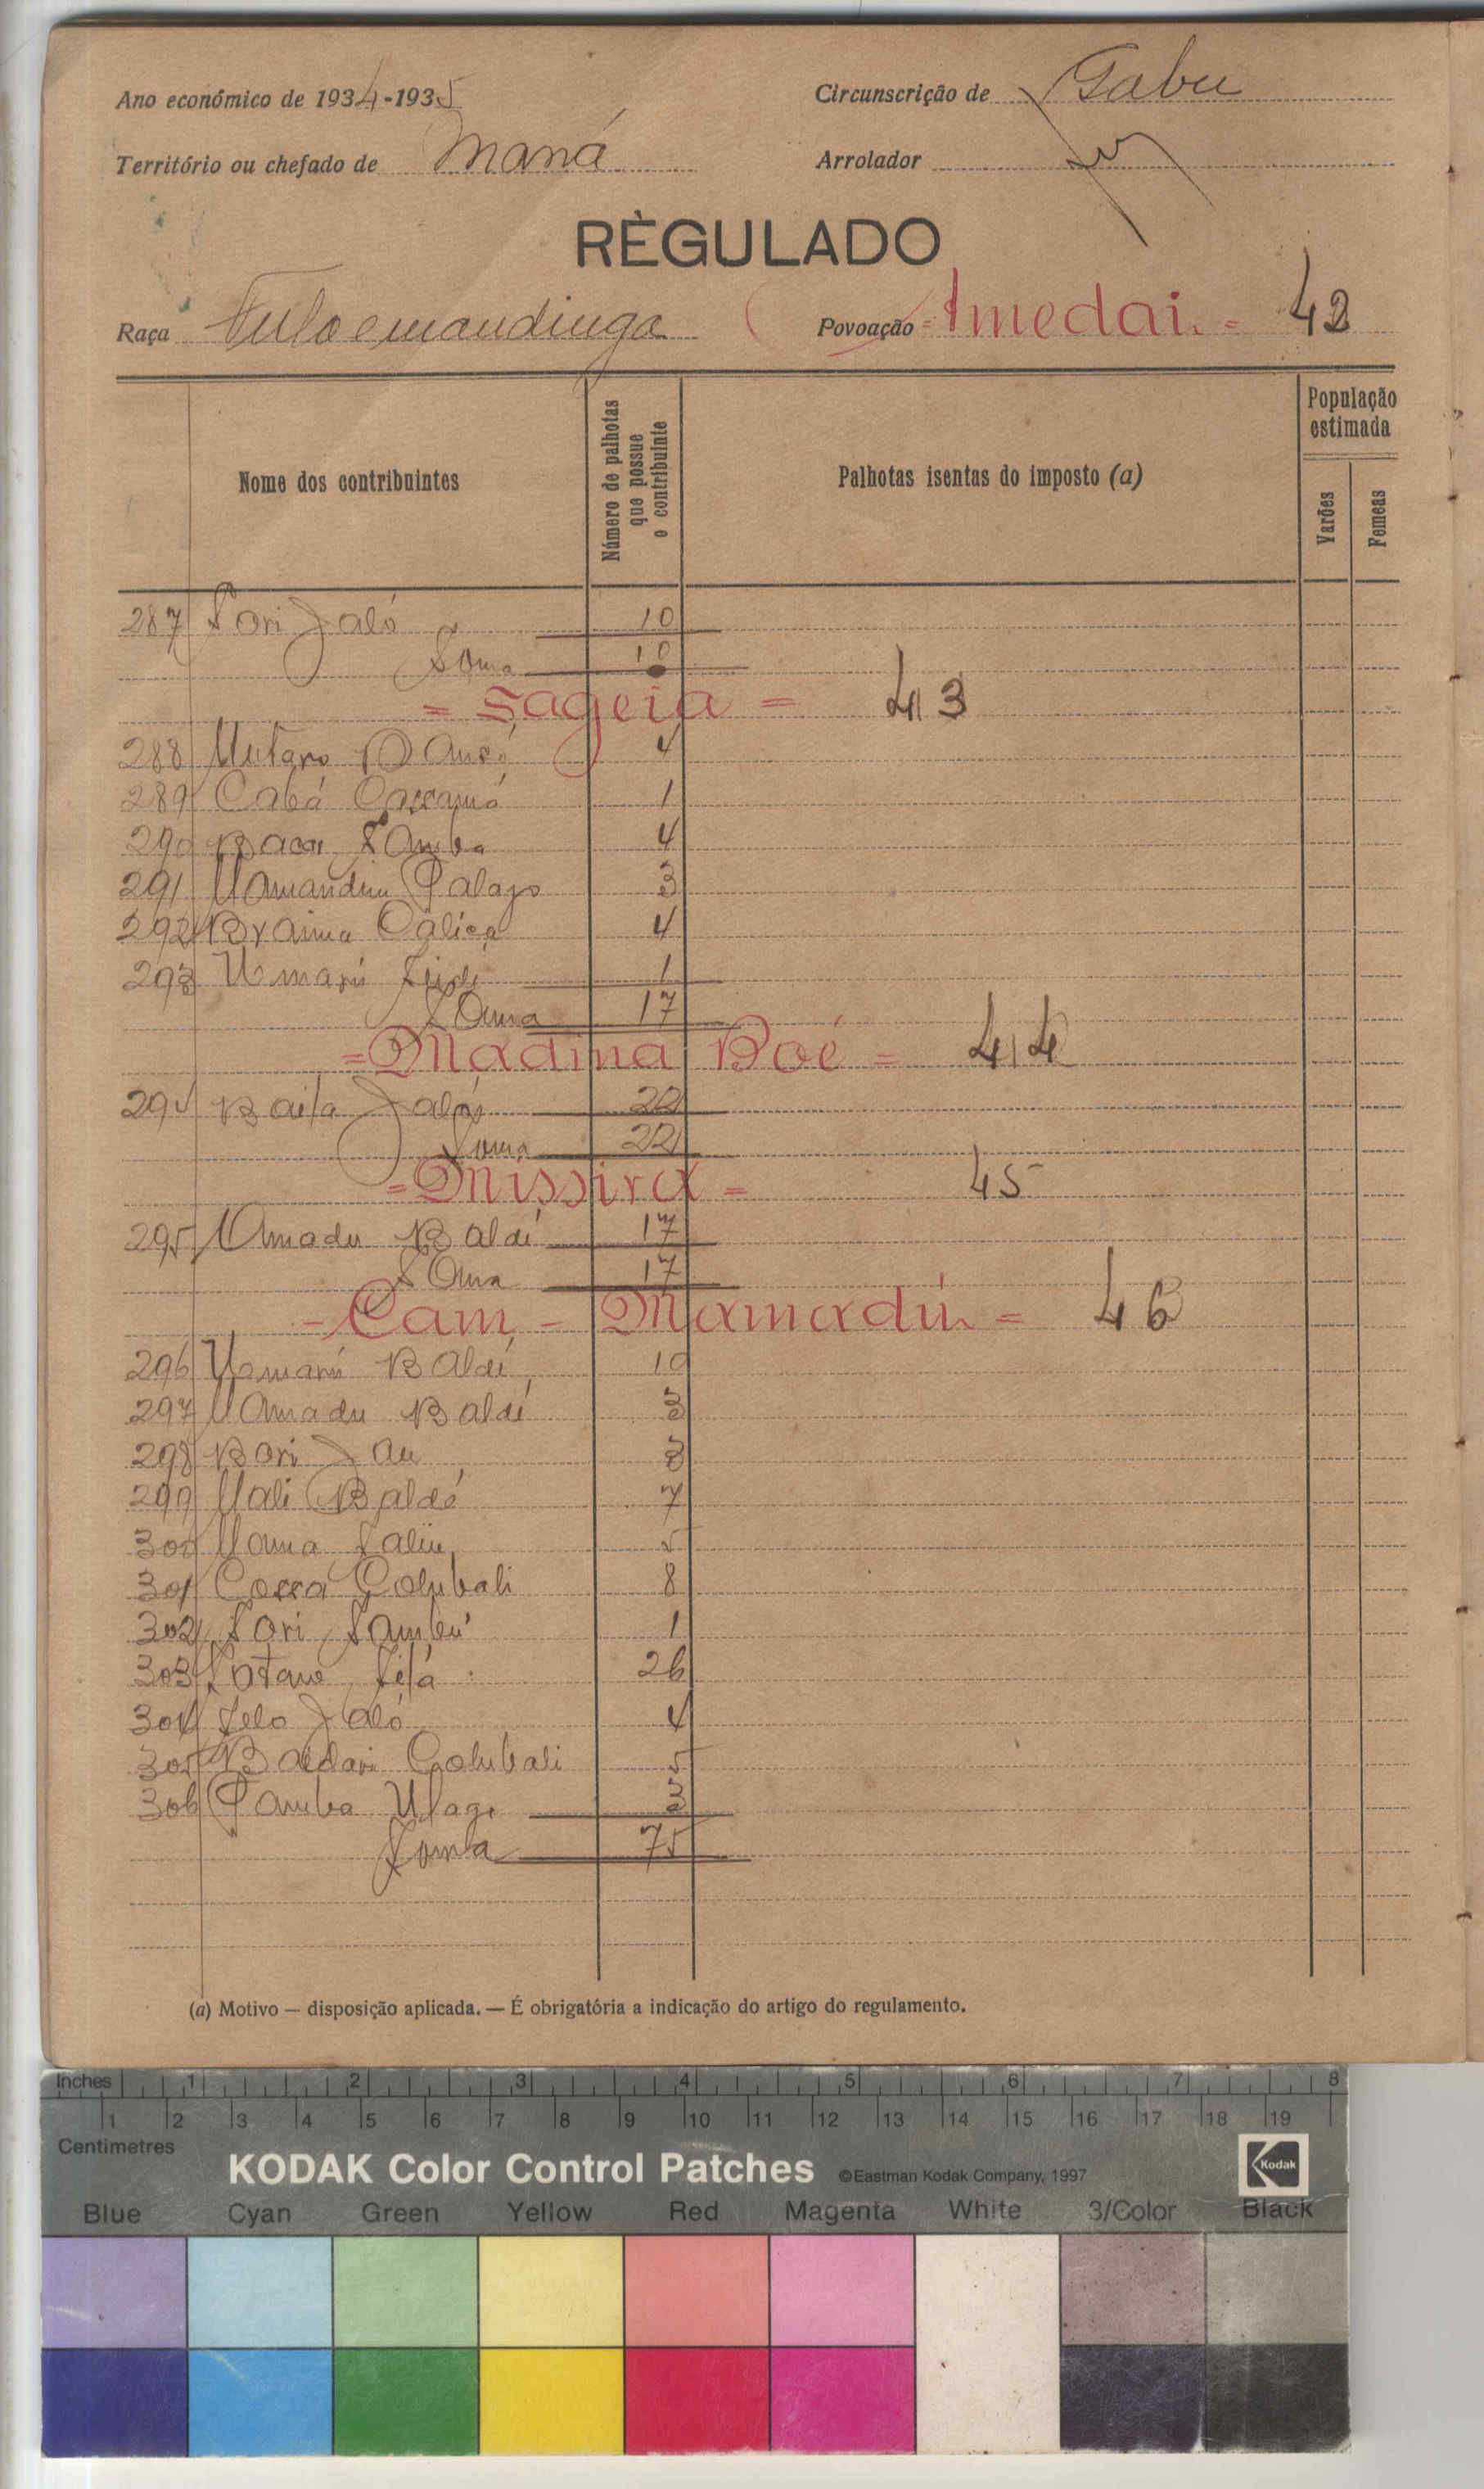 Ano económico de 1934-1935
Circunscrição de Gabu
Território ou chefado de Maná
Arrolador
RÈGULADO
Raça Fula e mandinga
Povoação = Amedai. = 42
Nome dos contribuintes
Número de palhotas que possue o contribuinte
Palhotas isentas do imposto (a)
População estimada
Varões
Femeas
287 Sori Jaló 10
Soma 10
= Sageia = 43
288 Mutaro Dansó 4
289 Cabá Cassamá 1
290 Bacar Samba 4
291 Mamandim 3
292 Braima Calissa 4
293 Umarú 1
Soma 17
= Madina Boé = 44
294 Baila Jaló 22
Soma 22
= Missira = 45
295 Amadu Baldé 17
Soma 17
- Cam - Mamadú = 46
296 Umarú Baldé 10
297 Mamadu Baldé 3
298 Bori Jau 3
299 Mali Baldé 7
300 Mama Saliu 5
301 Cossa Colubali 8
302 Sori Sambú 1
303 26
304 Selo Jaló 4
305 Colubali 5
306 Samba 3
Soma 75
(a) Motivo — disposição aplicada. — É obrigatória a indicação do artigo do regulamento.
Inches 1 2 3 4 5 6 7 8
1 2 3 4 5 6 7 8 9 10 11 12 13 14 15 16 17 18 19
Centimetres
KODAK Color Control Patches ©Eastman Kodak Company, 1997 Kodak
Blue Cyan Green Yellow Red Magenta White 3/Color Black